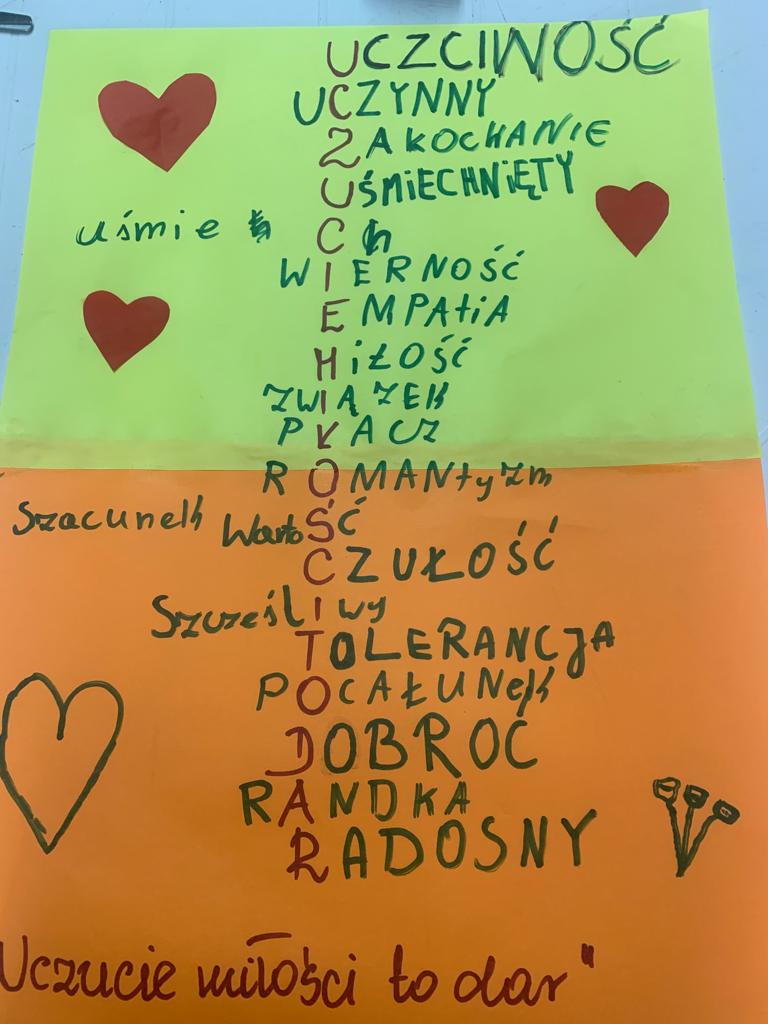 UCZCIWOŚĆ
UCZYNNY
ZAKOCHANIE
UŚMIECHNIĘTY
uśmieCh
WIERNOŚĆ
EMPAtiA
MiŁOŚĆ
ZWIĄZEK
PŁACZ
ROMANtyzm
Szacunek WartoŚĆ
CZUŁOŚĆ
SzczęślIwy
TOLERANCJA
POCAŁUNek
DOBROĆ
RANDKA
RADOSNY
Uczucie miłości to dar"